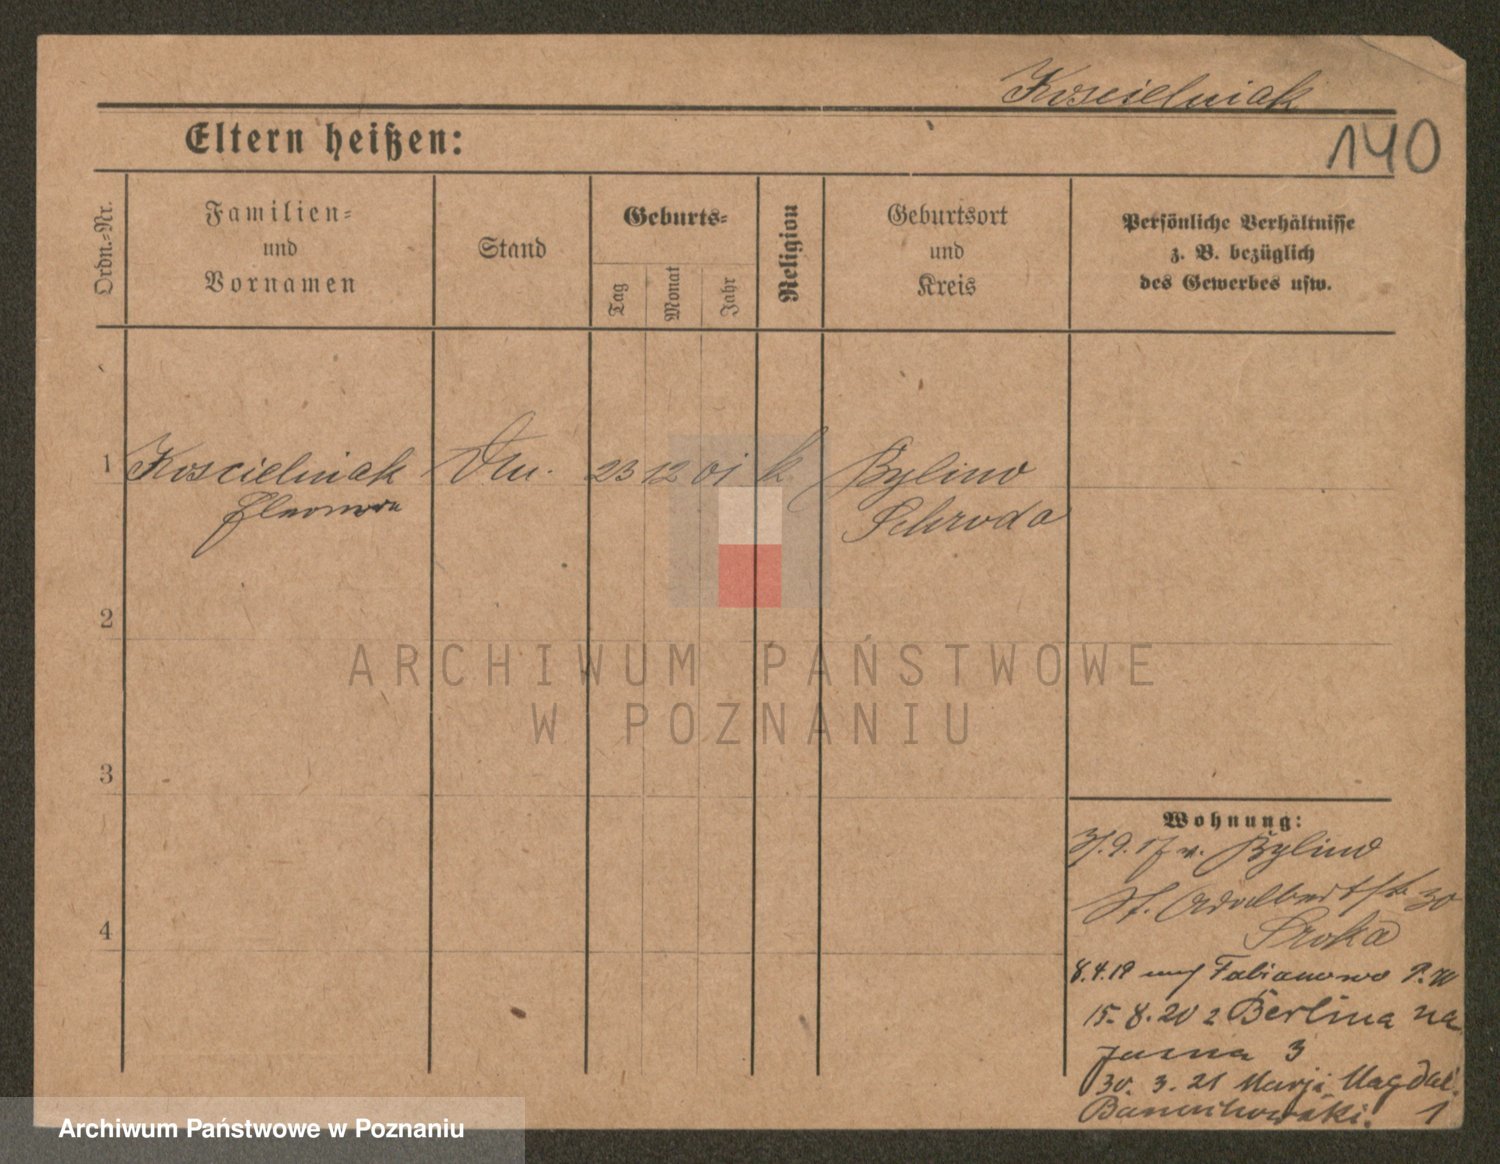 Koscielniak
140
Eltern heißen:
Ordn.-Nr.
Familien-
und
Vornamen
Stand
Geburts-
Tag
Monat
Jahr
Religion
Geburtsort
und
Kreis
Persönliche Verhältnisse
z. B. bezüglich
des Gewerbes usw.
1
Koscielniak
Eleonora
23 12 01 k
Bylino
Schroda
2
3
4
Wohnung:
9. 17 v. Bylino
St. Adalbertstr 30
Sroka
8.4.19 auf Fabianowo
15.8.20 z Berlina na
Jasna 3
30. 3. 21 Marji Magdal.
1
ARCHIWUM PAŃSTWOWE
W POZNANIU
Archiwum Państwowe w Poznaniu